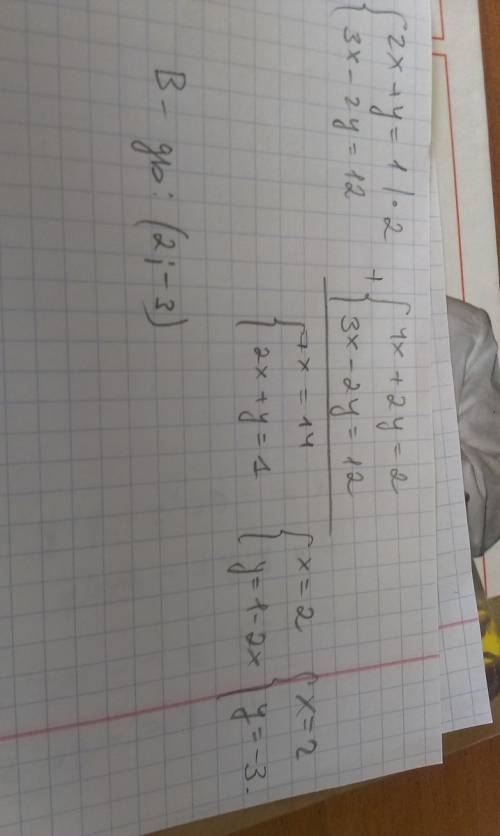 { 2x + y = 1 | · 2
{ 3x - 2y = 12
+ { 4x + 2y = 2
{ 3x - 2y = 12
{ 7x = 14
{ 2x + y = 1
{ x = 2
{ y = 1 - 2x
{ x = 2
{ y = -3.
В - дь: (2; -3)